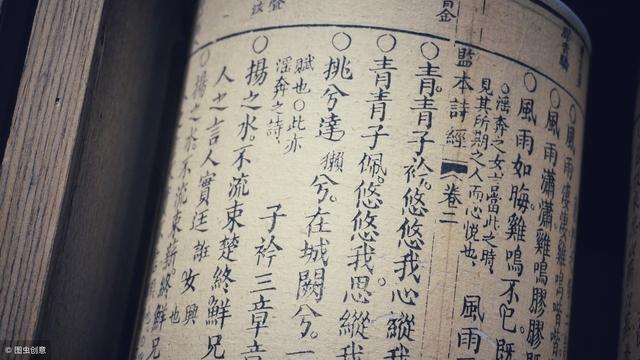 ○風雨瀟瀟雞鳴膠膠
○風雨如晦雞鳴不已既
○淫奔之女言當此之時
見其所期之人而心悅也 風雨
監本詩經 卷二
○青青子衿。悠悠我心縱我
○青青子佩。悠悠我思。縱我
○挑兮達獺兮。在城闕兮。一
賦也○此亦
淫奔之詩
子衿三章章
○揚之水。不流束楚終鮮兄
人之言人實迋誑女 興也
○揚之水不流束薪。終鮮兄
©图虫创意